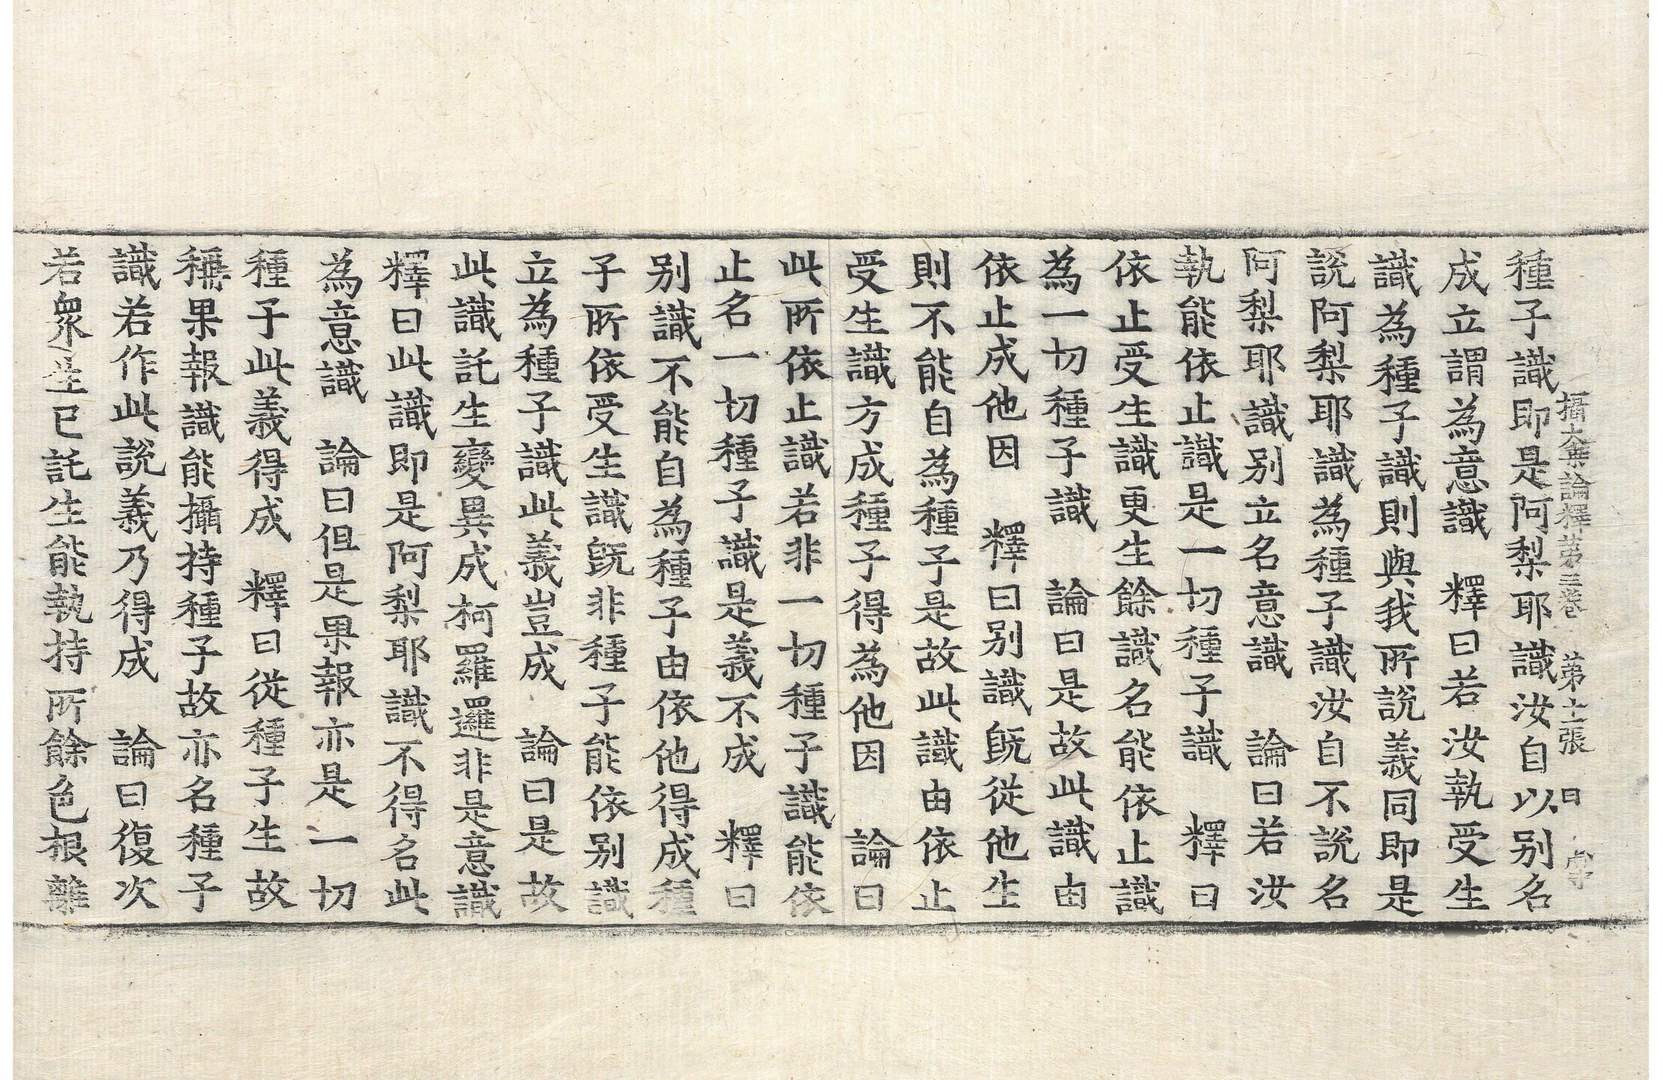 攝大乘論釋第三卷 第十張 曰 常
種子識即是阿梨耶識汝自以别名
成立謂為意識 釋曰若汝執受生
識為種子識則與我所說義同即是
說阿梨耶識為種子識汝自不說名
阿梨耶識别立名意識 論曰若汝
執能依止識是一切種子識 釋曰
依止受生識更生餘識名能依止識
為一切種子識 論曰是故此識由
依止成他因 釋曰别識旣從他生
則不能自為種子是故此識由依止
受生識方成種子得為他因 論曰
此所依止識若非一切種子識能依
止名一切種子識是義不成 釋曰
别識不能自為種子由依他得成種
子所依受生識旣非種子能依别識
立為種子識此義豈成 論曰是故
此識託生變異成柯羅邏非是意識
釋曰此識即是阿梨耶識不得名此
為意識 論曰但是果報亦是一切
種子此義得成 釋曰從種子生故
稱果報識能攝持種子故亦名種子
識若作此說義乃得成 論曰復次
若衆生已託生能執持所餘色根離